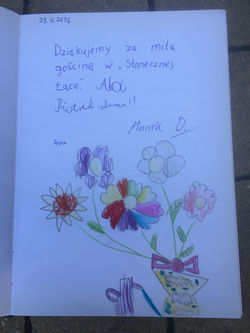 29.V.2016
Dziękujemy za miłą
gościnę w „Słonecznej
Łące". Ala
Piotrek !!
Maciek D.
Ania